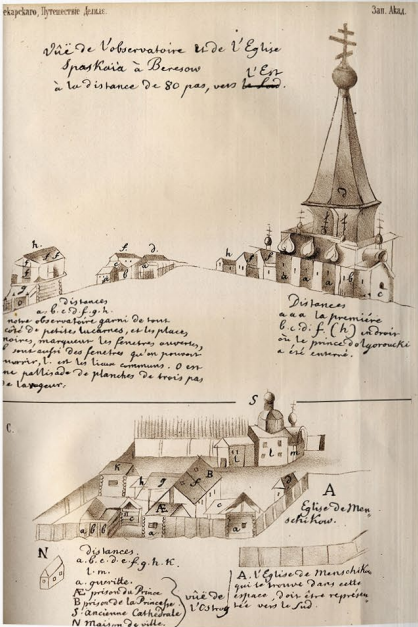 екарскаго, Путешествіе Делиля.
Зап. Акад.
Vüë de l'observatoire et de l'Eglise
Spaskaïa à Beresow
à la distance de 80 pas, vers l'Est
le Sud.
h.
f.
d.
h
distances
a. b. c. d. f. g. h.
notre observatoire garni de tout
coté de petites lucarnes, et les places
noires, marquent les fenetres ouvertes,
sont aussi des fenetres qu'on pouvoit
ouvrir, l. est les lieux communs. O est
une pallisade de planches de trois pas
de largeur.
Distances
a a a la première
b. c. d. f. (h) endroit
où le prince dolgorouki
a été enterré.
C.
S
K
h
g
f
B
Æ
c
d
a b b
l
l
m
A
Eglise de Men
schikow.
N
distances.
a. b. c. d. e. f. g. h. K.
l. m.
a. guerite.
Æ prison du Prince
B prison de la Princesse
S. ancienne Cathédrale
N maison de ville.
vüë de
l'Ostrog
A. l'Eglise de Menschikow
qui se trouve dans cette
espace, doit être représen
tée vers le Sud.